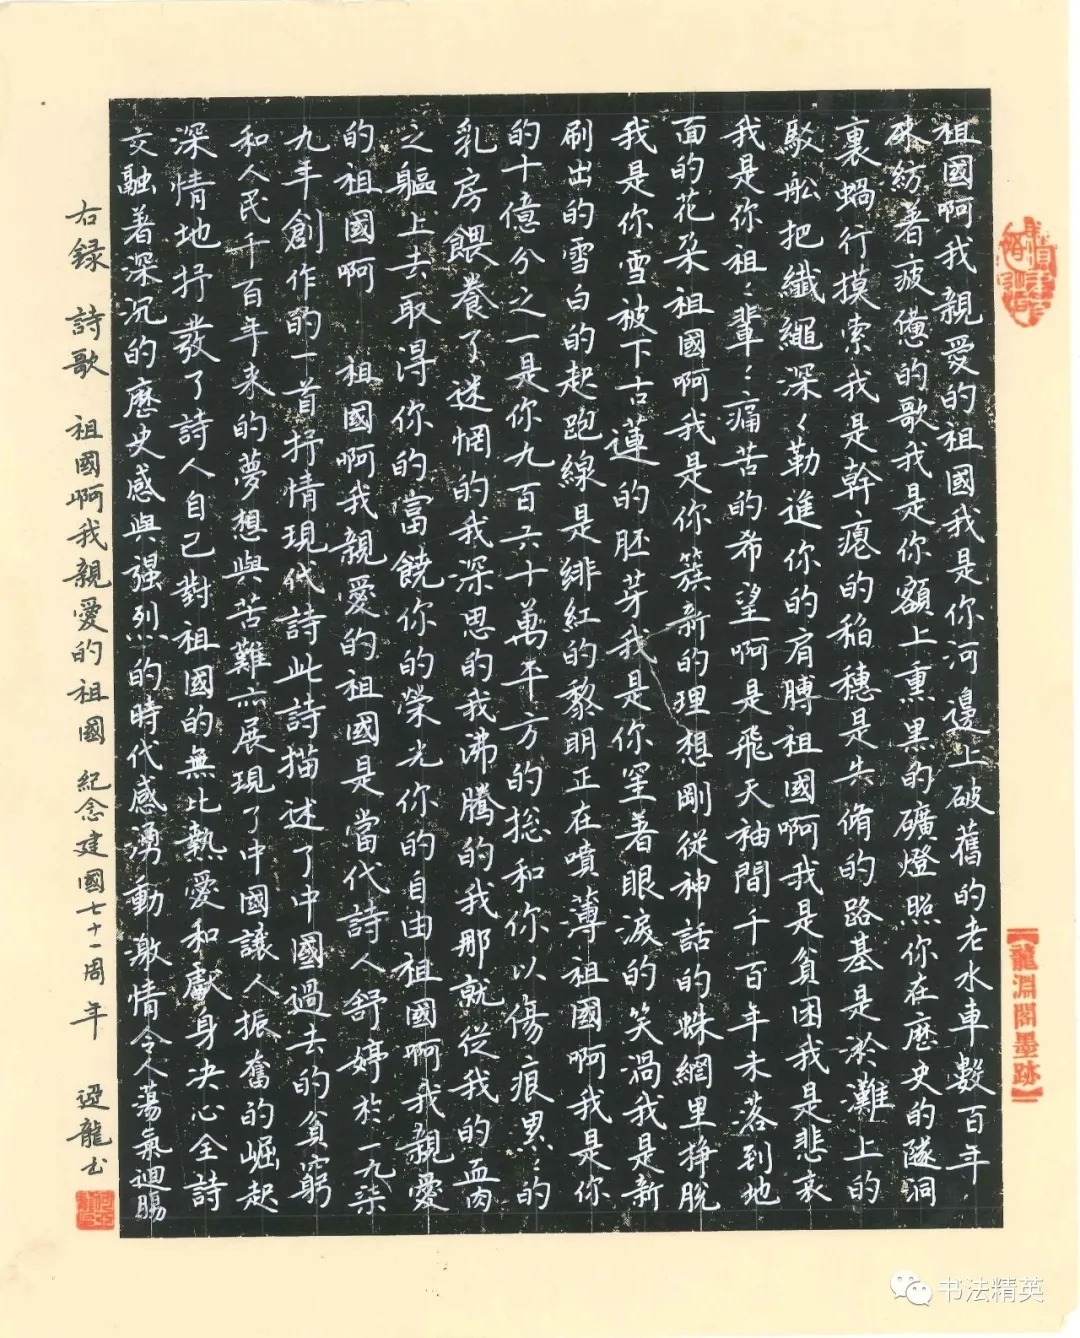 祖國啊我親愛的祖國我是你河邊上破舊的老水車數百年
來紡着疲憊的歌我是你額上熏黑的礦燈照你在歷史的隧洞
裏蝸行摸索我是幹癟的稻穗是失脩的路基是淤灘上的
駁舩把纖繩深〻勒進你的肩膊祖國啊我是貧困我是悲哀
我是你祖〻輩〻痛苦的希望啊是飛天袖間千百年未落到地
面的花朵祖國啊我是你簇新的理想剛從神話的蛛網里掙脫
我是你雪被下古蓮的胚芽我是你笙著眼淚的笑渦我是新
刷出的雪白的起跑線是緋紅的黎明正在噴薄祖國啊我是你
的十億分之一是你九百六十萬平方的總和你以傷痕累〻的
乳房餵養了迷惘的我深思的我沸騰的我那就從我的血肉
之軀上去取得你的富饒你的榮光你的自由祖國啊我親愛
的祖國啊 祖國啊我親愛的祖國是當代詩人舒婷於一九柒
九年創作的一首抒情現代詩此詩描述了中國過去的貧窮
和人民千百年来的夢想與苦難亦展現了中國讓人振奮的崛起
深情地抒發了詩人自己對祖國的無比熱愛和獻身决心全詩
交融著深沉的歷史感與强烈的時代感湧動激情令人蕩氣迴腸
右録 詩歌 祖國啊我親愛的祖國 紀念建國七十一周年 遊龍书
龍淵閣墨跡
书法精英